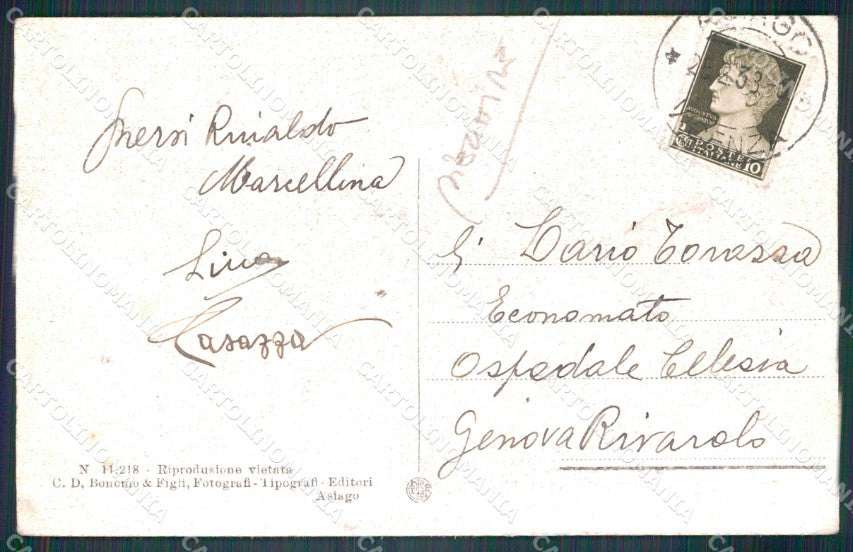 Rinaldo
Marcellina
Lina
Casazza
N 11-218 - Riproduzione vietata
C. D. Bonomo & Figli, Fotografi - Tipografi - Editori
Asiago
ASIAGO
VICENZA
POSTE
ITALIANE
10
Torazza
Economato
Ospedale Celesia
Genova Rivarolo
CARTOLINOMANIA